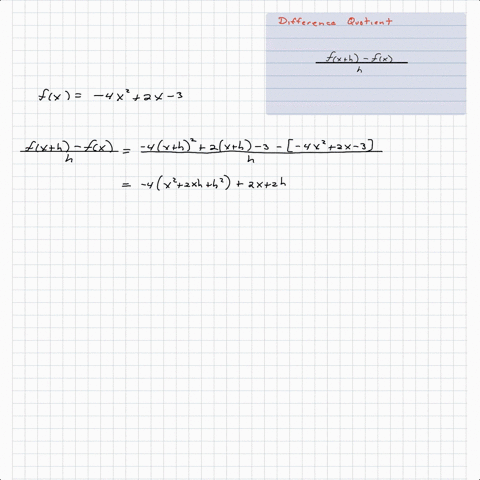 Difference Quotient
f(x+h) - f(x) / h
f(x) = -4x² + 2x - 3
f(x+h) - f(x) / h = -4(x+h)² + 2(x+h) - 3 - [-4x² + 2x - 3] / h
= -4(x² + 2xh + h²) + 2x + 2h